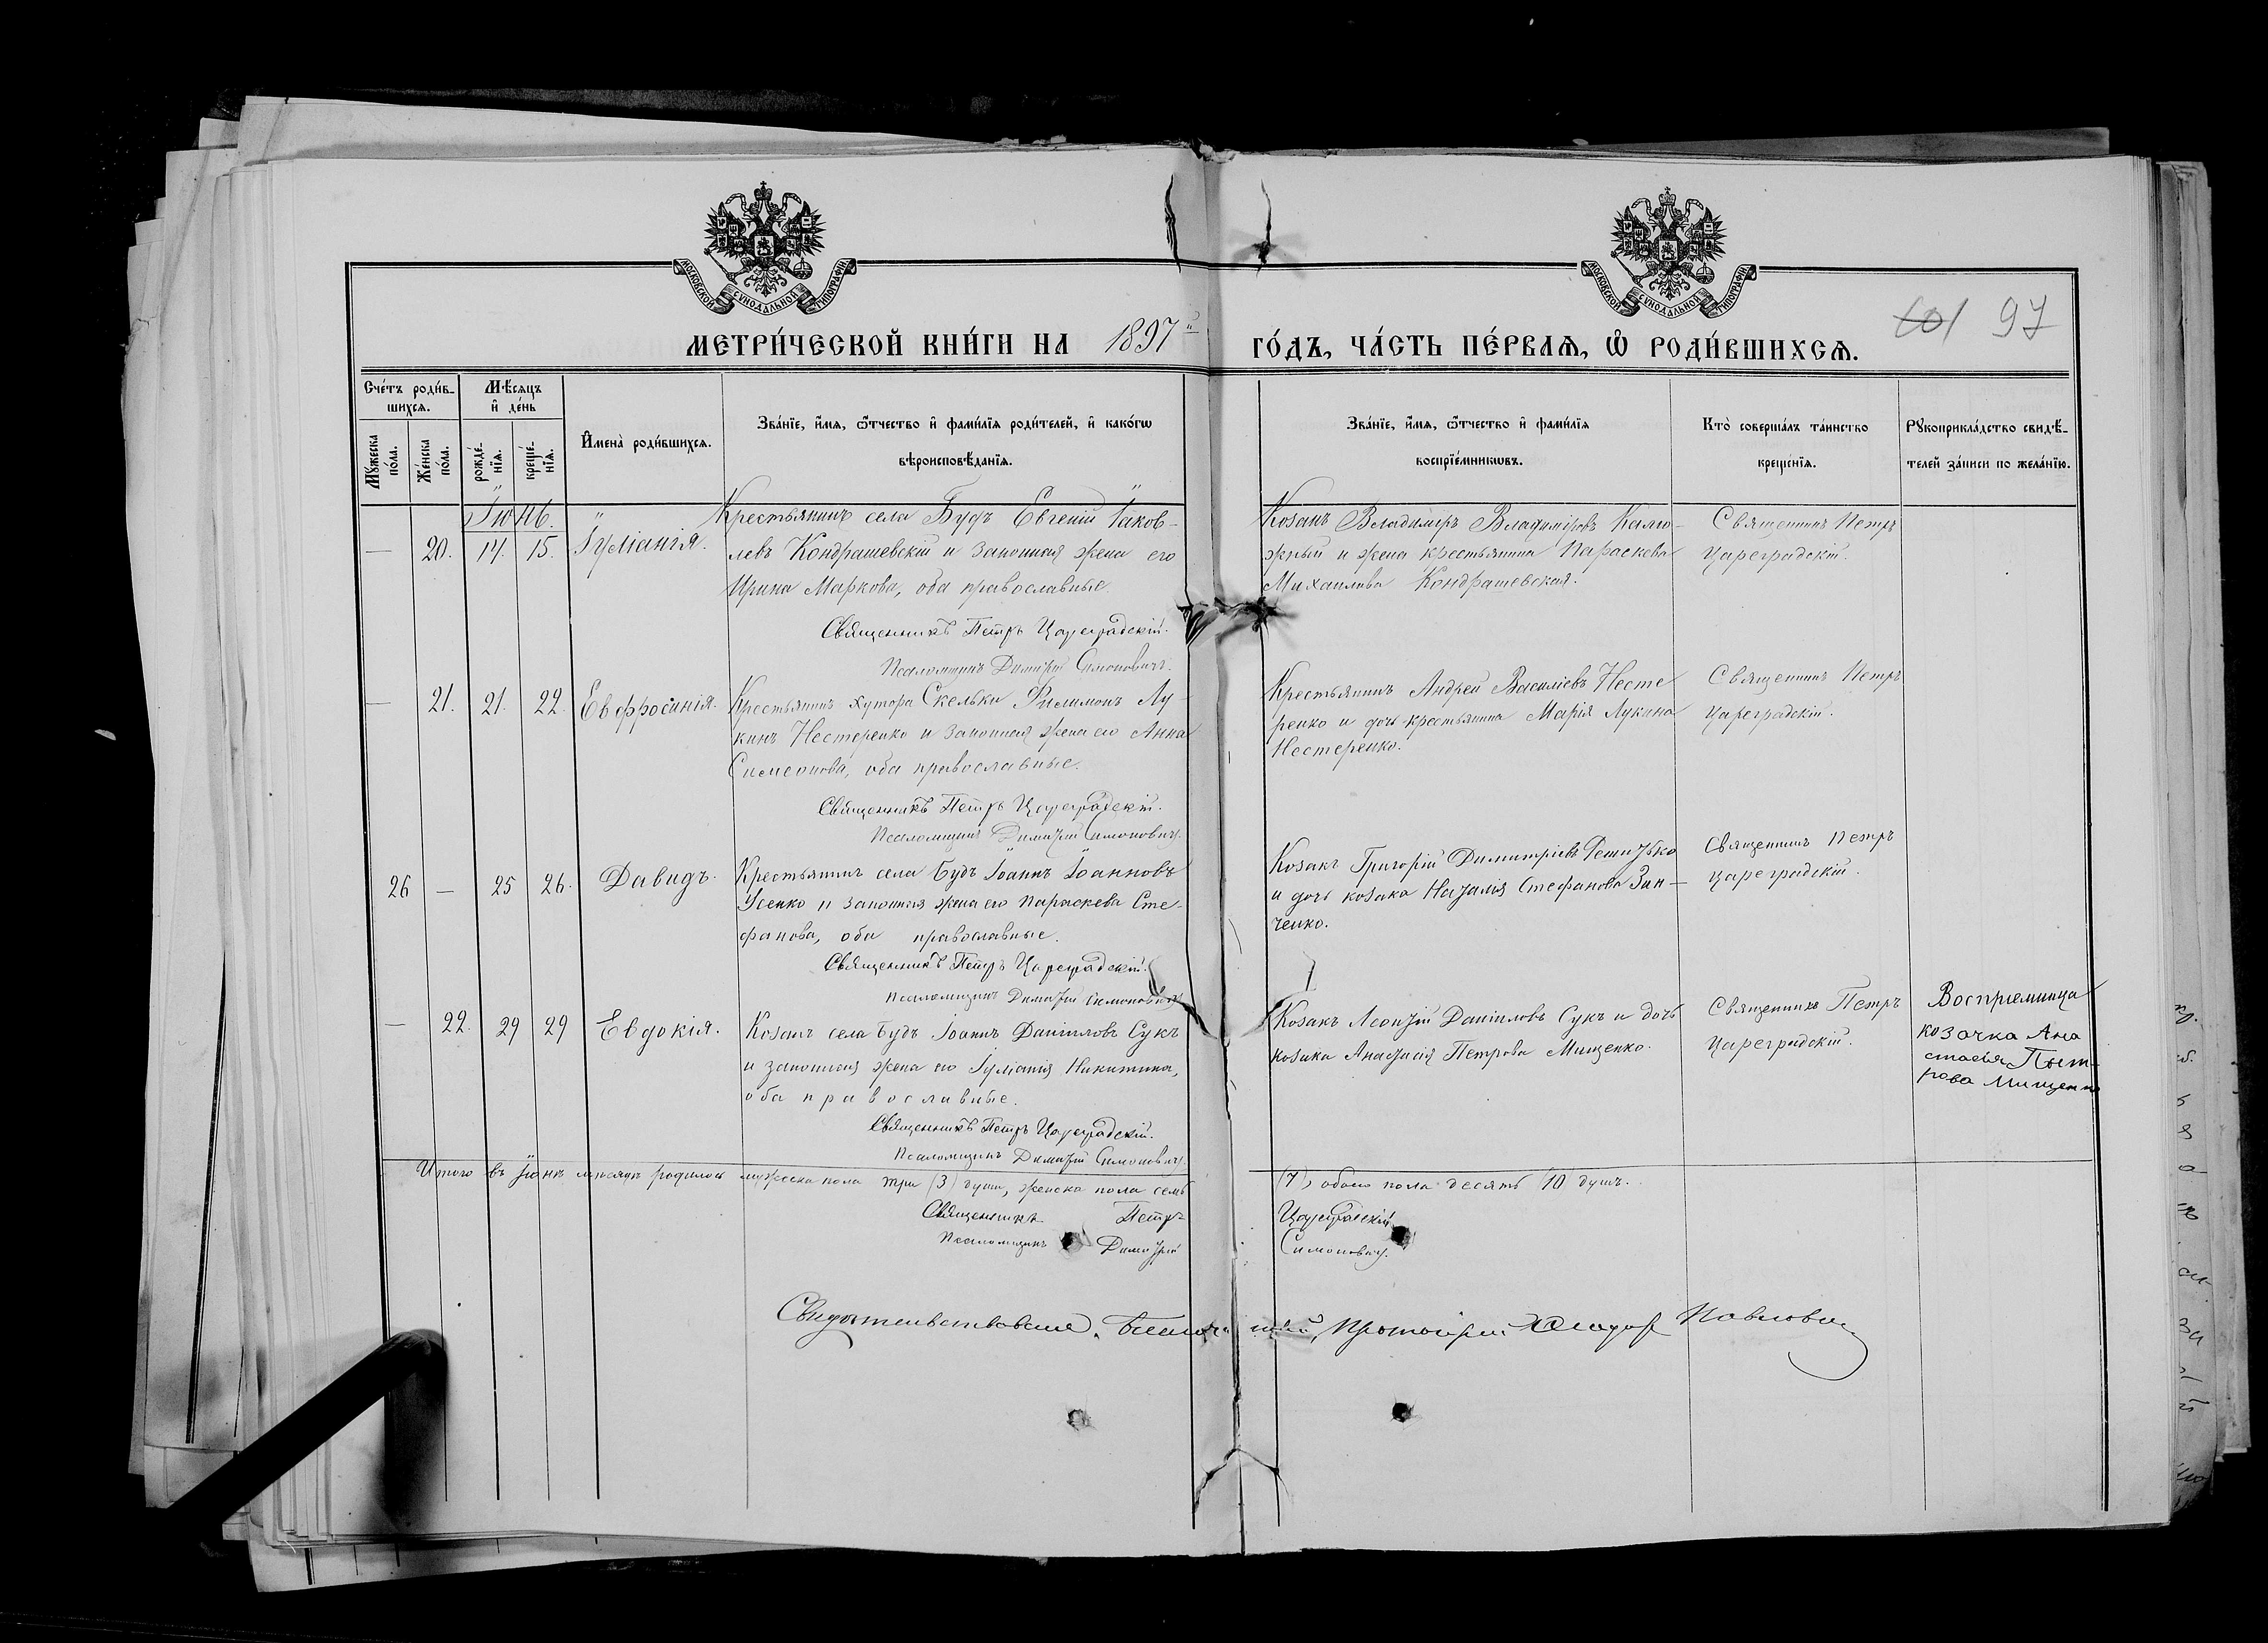 МОСКОВСКОЙ СУНОДАЛЬНОЙ ТИПОГРАФІИ
МОСКОВСКОЙ СУНОДАЛЬНОЙ ТИПОГРАФІИ
МЕТРИ́ЧЕСКОЙ КНИ́ГИ НА 1897й ГО́ДЪ, ЧА́СТЬ ПЕ́РВАѦ, Ѽ РОДИ́ВШИХСѦ.
101 97
Сче́тъ роди́в-
шихсѧ.
Мѣ́сѧцъ
и҆ де́нь
Мꙋ́жеска
по́ла.
Же́нска
по́ла.
рожде́-
нїѧ.
креще́-
нїѧ.
И҆мена̀ роди́вшихсѧ.
Зва́нїе, и҆́мѧ, ѻ҆́тчество и҆ фами́лїѧ роди́телей, и҆ како́гѡ
вѣроисповѣ́данїѧ.
Зва́нїе, и҆́мѧ, ѻ҆́тчество и҆ фами́лїѧ
воспрїе́мникѡвъ.
Кто̀ соверша́лъ та́инство
креще́нїѧ.
Рꙋкоприкла́дство свидѣ́-
телей за́писи по жела́нїю.
Іюнь.
— 20. 14. 15. Іуліанія.
Крестьянинъ села Будъ Евгеній Іаков-
левъ Кондрашевскій и законная жена его
Ирина Маркова, оба православные.
Священникъ Петръ Цареградскій.
Псаломщикъ Димитрій Симоновичъ.
Козакъ Владимиръ Владиміровъ Калю-
жный и жена крестьянина Параскева
Михаилова Кондрашевская.
Священникъ Петръ
Цареградскій.
— 21. 21. 22. Евфросинія.
Крестьянинъ хутора Скельки Филимонъ Лу
кинъ Нестеренко и законная жена его Анна
Симеонова, оба православные.
Священникъ Петръ Цареградскій.
Псаломщикъ Димитрій Симоновичъ.
Крестьянинъ Андрей Василіевъ Несте
ренко и дочь крестьянина Марія Лукина
Нестеренко.
Священникъ Петръ
Цареградскій.
26 — 25 26. Давидъ.
Крестьянинъ села Будъ Іоаннъ Іоанновъ
Усенко и законная жена его Параскева Сте-
фанова, оба православные.
Священникъ Петръ Цареградскій.
Псаломщикъ Димитрій Симоновичъ.
Козакъ Григорій Димитріевъ
и дочь козака Наталія Стефанова Зин-
ченко.
Священникъ Петръ
Цареградскій.
— 22. 29 29 Евдокія.
Козакъ села Будъ Іоаннъ Даніиловъ Сукъ
и законная жена его Іуліанія Никитина,
оба православные.
Священникъ Петръ Цареградскій.
Псаломщикъ Димитрій Симоновичъ.
Козакъ Леонтій Даніиловъ Сукъ и дочь
козака Анастасія Петрова Мищенко.
Священникъ Петръ
Цареградскій.
Восприемница
козачка Ана
стасья Пет-
рова Мищенко
Итого въ Іюнѣ мѣсяцѣ родилось мужеска пола три (3) души, женска пола семь (7), обоего пола десять 10 душъ.
Священникъ Петръ Цареградскій
Псаломщикъ Димитрій Симоновичъ.
Свидѣтельствовалъ, Протоіерей Павловичъ